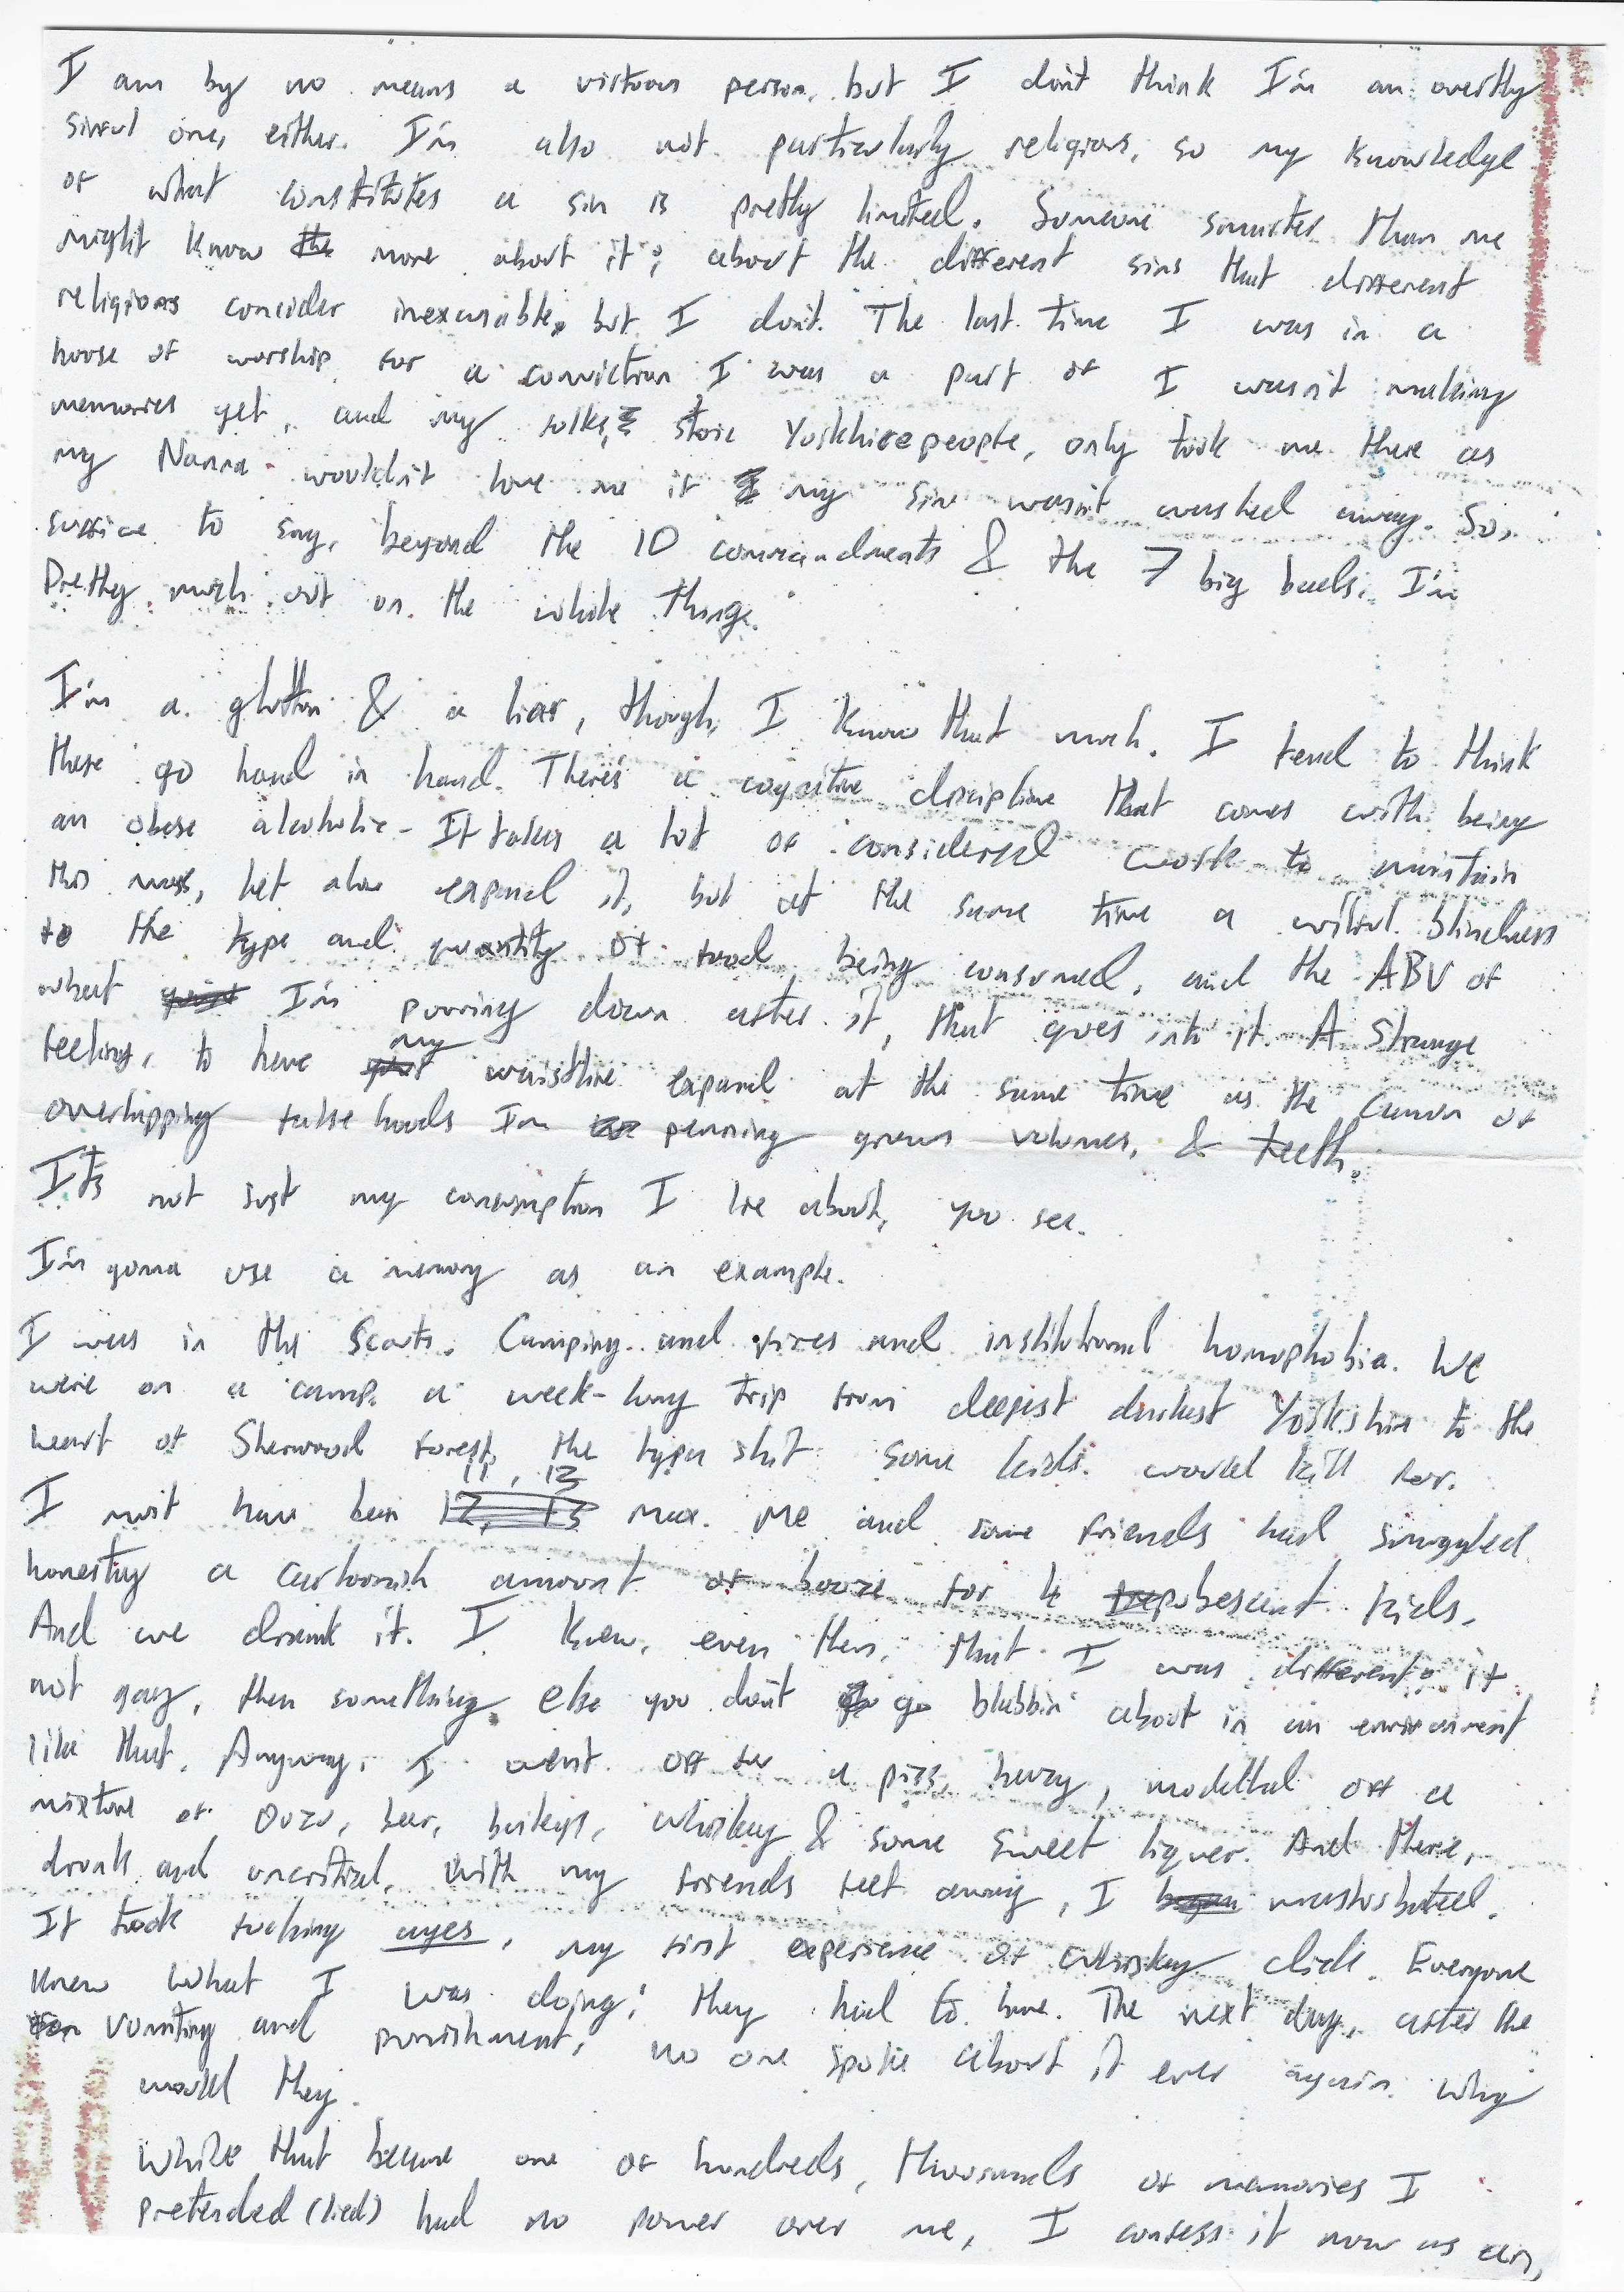 I am by no means a virtuous person, but I don't think I'm an overtly
sinful one, either. I'm also not particularly religious, so my knowledge
of what constitutes a sin is pretty limited. Someone smarter than me
might know more about it; about the different sins that different
religions consider inexcusable, but I don't. The last time I was in a
house of worship for a conviction I was a part of I wasn't making
memories yet, and my folks, stoic Yorkshirepeople, only took me there as
my Nanna wouldn't have me if my sin wasn't washed away. So,
suffice to say, beyond the 10 commandments & the 7 big bads, I'm
pretty much out on the whole thing.
I'm a glutton & a liar, though, I know that much. I tend to think
these go hand in hand. There's a cognitive discipline that comes with being
an obese alcoholic - It takes a lot of considered work to maintain
this mass, let alone expand it, but at the same time a wilful blindness
to the type and quantity of food being consumed, and the ABV of
what I'm pouring down after it, that goes into it. A strange
feeling, to have my waistline expand at the same time as the canon of
overlapping falsehoods I'm penning grows volumes, & teeth.
It's not just my consumption I lie about, you see.
I'm gonna use a memory as an example.
I was in the Scouts. Camping and fires and institutional homophobia. We
were on a camp, a week-long trip from deepest darkest Yorkshire to the
heart of Sherwood forest, the type shit some kids would kill for.
I must have been 11, 12 max. Me and some friends had smuggled
honestly a cartoonish amount of booze for 4 pubescent kids.
And we drank it. I knew, even then, that I was different; if
not gay, then something else you don't go blabbin' about in an environment
like that. Anyway, I went off for a piss, hazy, modelled off a
mixture of Ouzo, beer, baileys, whiskey & some sweet liquer. And there,
drunk and uncritical, with my friends feet away, I masturbated.
It took fucking ages, my first experience of whiskey dick. Everyone
knew what I was doing; they had to have. The next day, after the
vomiting and punishment, no one spoke about it ever again. Why
would they.
While that became one of hundreds, thousands of memories I
pretended (lied) had no power over me, I confess it now as an,